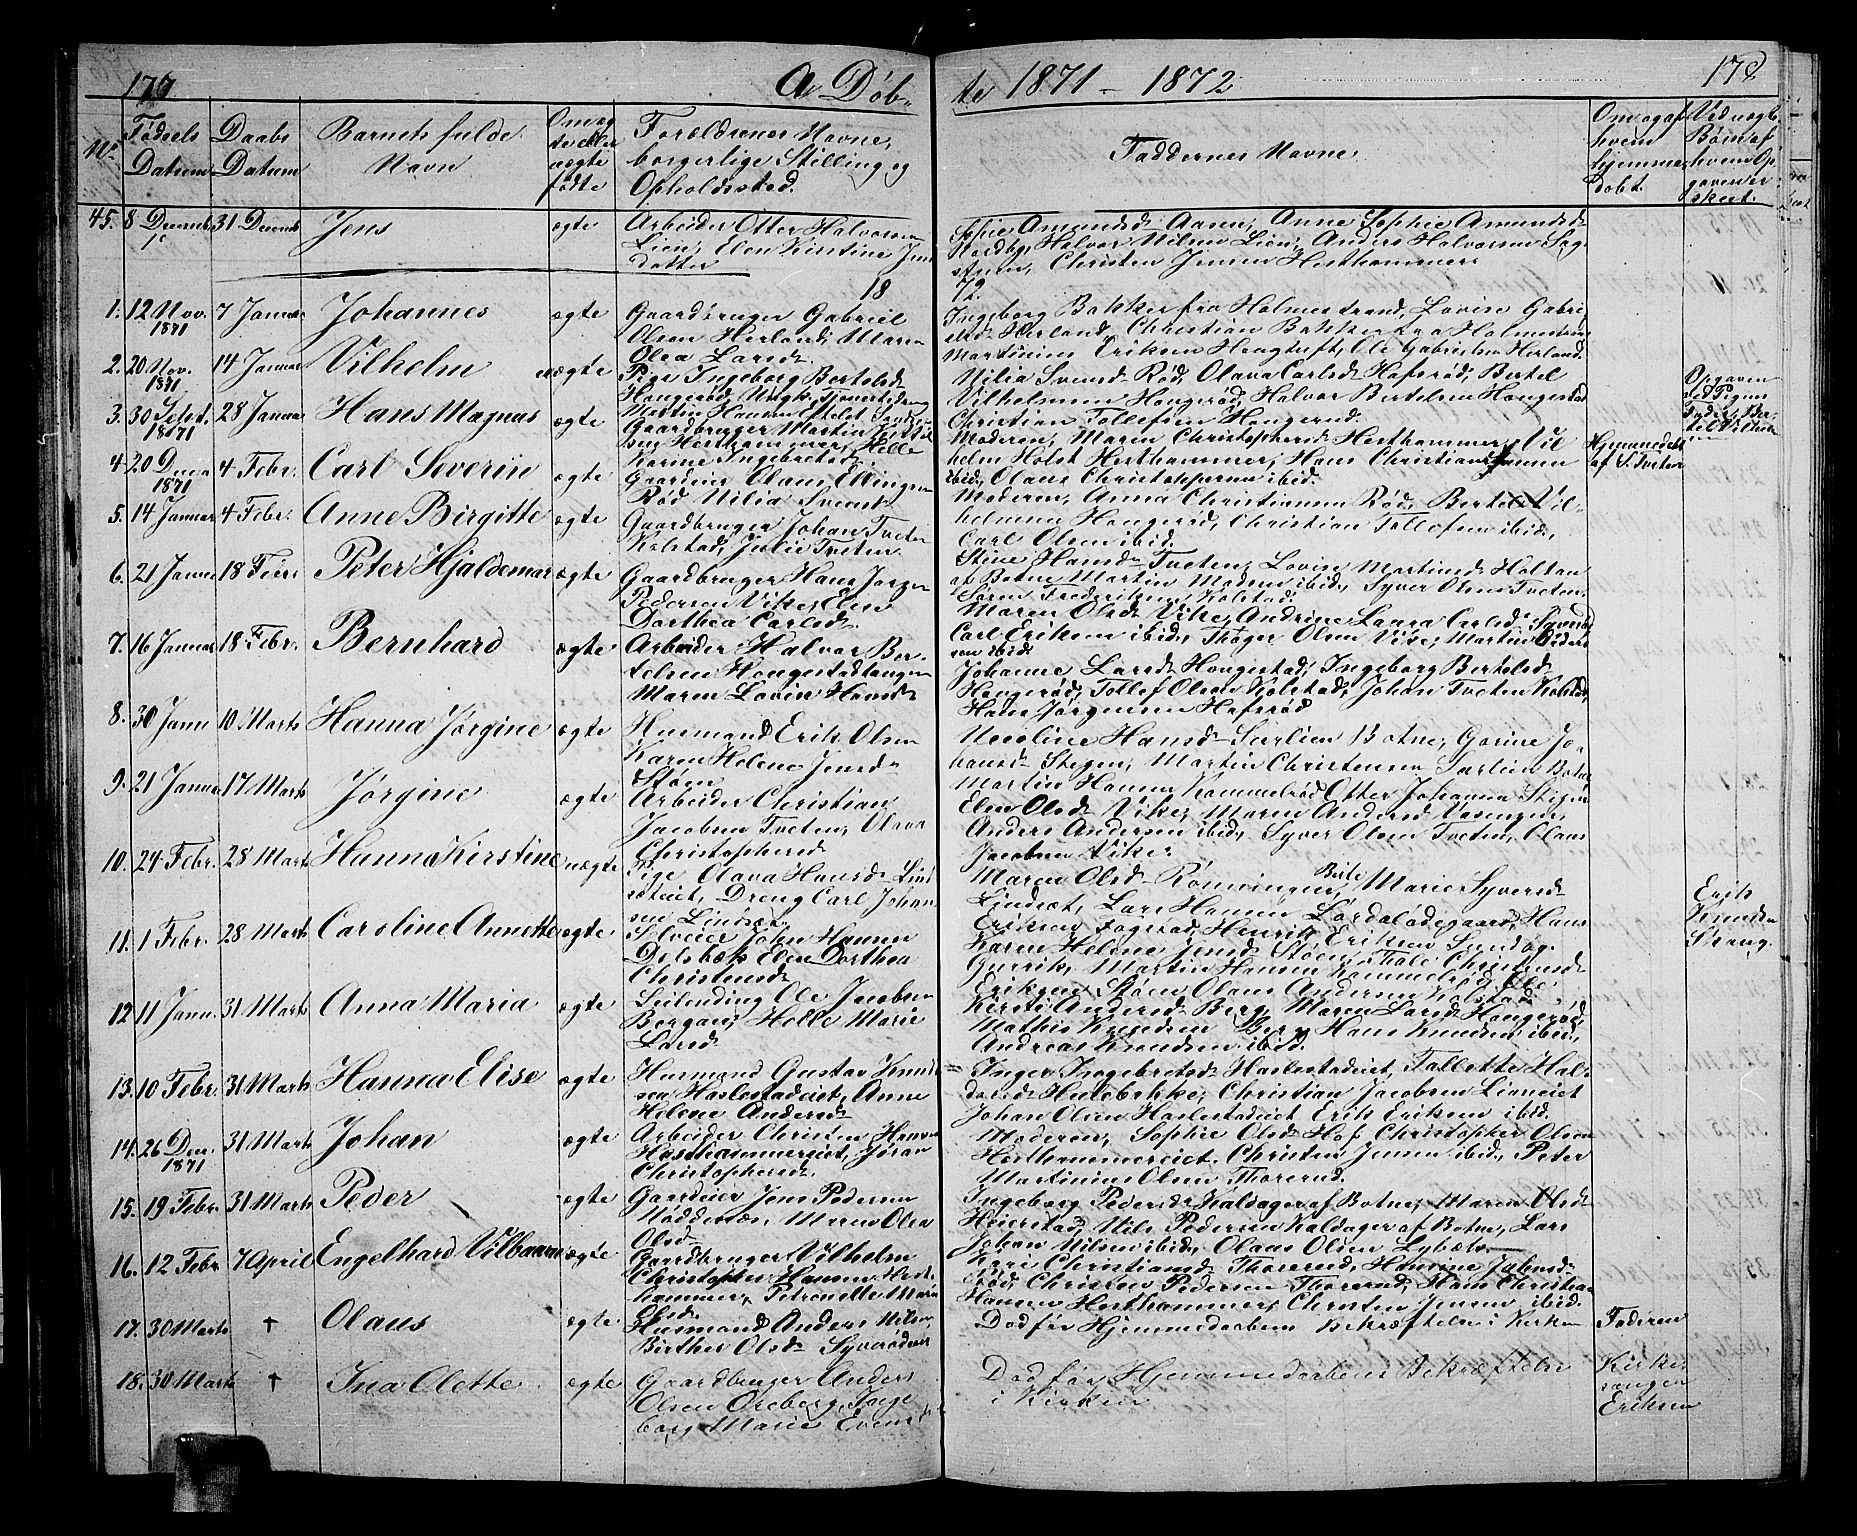 177
A Døb-
te 1871 - 1872
178
No.
Fødsels Datum
Daabs Datum
Barnets fulde Navn
Om ægte eller uægte fødte
Forældrenes Navne, borgerlige Stilling og Opholdssted.
Faddernes Navne
Om og af hvem hjemmedøbt.
Ved uægte Børn af hvem Opgaven er skeet.
45. 8 Decemb 31 Decemb Jens ægte Arbeider Otter Halvorsen
Lien, Elen Kirstine Jens
datter
Sophie Amundsd Aasen, Anne Sophie Amundsd
Nordby, Halvor Nilsen Lien, Anders Halvorsen
Christen Jensen Hesthammer
18 72.
1. 12 Nov. 1871 7 Januar Johannes ægte Gaardbruger Gabriel
Olsen Herland, Maren
Olea Larsd.
Ingeborg Bakker fra Holmestrand, Lovise Gabri
elsd Herland, Christian Bakker fra Holmestrand
Martinius Eriksen Hengtuft, Ole Gabrielsen Herland.
2. 20 Nov. 1871 14 Januar Vilhelm uægte Pige Ingeborg Bertelsd
Hongerød, Ungk.
Martin Hansen
Nilia Svensd Rød, Olava Carlsd Hafsrød, Bertel
Vilhelmsen Hongerød, Halvor Bertelsen Hongestad
Christian Tollefsen Hongerød.
Opgaven ved Pigens Fader Bertel Vilhelmsen
3. 30 1871 28 Januar Hans Magnus ægte Gaardbruger Martin
Hesthammer, Helle
Karine Ingebretsd
Moderen, Maren Christophersd Hesthammer, Vil
helm Holst Hesthammer, Hans Christian Jensen
ibid, Olaus Christophersen ibid.
Hjemmedøbt af S. Tveter
4. 20 Dec. 1871 4 Febr. Carl Severin ægte Gaardeier Olaus Ellingsen
Rød Nilia Svensd
Moderen, Anna Christiansen Rød, Bertel Vil-
helmsen Hongerød, Christian Tollefsen ibid,
Carl Olsen ibid.
5. 14 Januar 4 Febr. Anne Birgitte ægte Gaardbruger Johan Tveten
Kolstad, Julie Tveten
Stine Hansd Tveten, Lovise Martinsd Holtan
af Botne, Martin Madsen ibid, Syver Olsen Tveten,
Søren Frederiksen Kolstad.
6. 21 Januar 18 Febr Peter Hjaldemar ægte Gaardbruger Hans Jørgen
Pedersen Vike, Elen
Dorthea Carlsd.
Maren Olsd Vike, Andrine Laura Carlsd
Carl Eriksen ibid, Thøger Olsen Vike, Martin Peder
sen ibid
7. 16 Januar 18 Febr. Bernhard ægte Arbeider Halvor Ber-
telsen Hongestadtangen
Maren Lovise Hansd
Johanne Larsd Hongestad, Ingeborg Bertelsd
Hongerød, Tollef Olsen Kolstad, Johan Tveten Kolstad,
Hans Jørgensen Hafsrød
8. 30 Janu 10 Marts Hanna Jørgine ægte Husmand Erik Olsen
Karen Helene Jensd
Støen
Nicoline Hansd Sørlien Botne, Gorine Jo-
hansd Stegen, Martin Christensen Sørlien Botne
Martin Hansen Kommelrød Otter Johansen Stigen
9. 21 Januar 17 Marts Jørgine ægte Arbeider Christian
Jacobsen Tveten, Olava
Christophersd
Elen Olsd Vike, Maren Andersd Vasengen,
Anders Andersen ibid, Syver Olsen Tveten, Olaus
Jacobsen Vike.
10. 24 Febr. 28 Marts Hanna Kirstine uægte Pige Olava Hansd Lind
sæteiet, Dreng Carl Johan
sen Lindsæt
Maren Olsd Rønningen, Marie Syversd
Lindsæt, Lars Hansen Lørdalødegaard, Hans
Eriksen Fagerød, Henrik Eriksen
Erik Knudsen Skaug.
11. 1 Febr. 28 Marts Caroline Annette ægte Selveier John Hansen
Dalsbæk Elen Dorthea
Christensd
Karen Helene Jensd Støen, Thale Christensd
Gurrik, Martin Hansen Kommelrød, Ole
Eriksen Støen Olaus Andersen Kolstad
12. 11 Janu. 31 Marts Anna Maria ægte Ole Jacobsen
Borgan, Helle Marie
Larsd
Kirsti Andersd Berg, Maren Larsd Hongerød,
Mathis Knudsen Berg, Hans Knudsen ibid,
Andreas Knudsen ibid.
13. 10 Febr. 31 Marts Hanna Elise ægte Husmand Gustav Knud
sen Haslestadeiet, Anne
Helene Andersd
Inger Ingebretsd Haslestadeiet, Tallette Hal-
Hulebakke, Christian Jacobsen Lianeiet
Johan Olsen Haslestadeiet Erik Eriksen ibid.
14. 26 Dec. 1871 31 Marts Johan ægte Arbeider Christen Hansen
Hesthammereiet, Joran
Christophersd.
Moderen, Sophie Olsd Hof Christopher Olsen
Hesthammereiet. Christen Jensen ibid, Peter
Martinius Olsen Thorerud.
15. 19 Febr. 31 Marts Peder ægte Gaardeier Jens Pedersen
Nøddenæs, Maren Olea
Olsd
Ingeborg Pedersd Kaldager af Botne, Maren Olsd
Heierstad, Nils Pedersen Kaldager af Botne, Lars
Johan Nilsen ibid, Olaus Olsen Lybæk
16. 12 Febr 7 April Engelhard Vilbaum ægte Gaardbruger Vilhelm
Christopher Hansen Hest
hammer, Petronelle Marie
Olsd
Kari Christiansd Thorerud, Hansine Jakobsd
Rød, Christen Pedersen Thorerud, Hans Christian
Hansen Hesthammer, Christen Jensen ibid.
17. 30 Marts † Olaus ægte Husmand Anders Nilsen
Birthe Olsd Syverødeiet
Død før Hjemmedaabens Bekræftelse i Kirken
Faderen
18. 30 Marts † Ina Olette ægte Gaardbruger Anders
Olsen Oreberg, Inge
borg Marie Evensd
Død før Hjemmedaabens Bekræftelse
i Kirken
Kirke
sanger
Eriksen